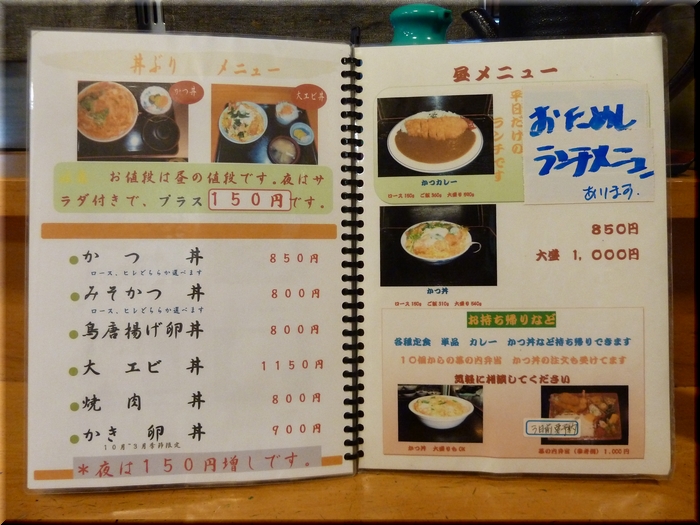 丼ぶり メニュー
かつ丼
大エビ丼
お値段は昼の値段です。夜はサ
ラダ付きで、プラス150円です。
かつ丼 850円
ロース、ヒレどちらか選べます
みそかつ丼 800円
ロース、ヒレどちらか選べます
鳥唐揚げ卵丼 800円
大エビ丼 1150円
焼肉丼 800円
かき卵丼 900円
10月~3月季節限定
*夜は150円増しです。
昼メニュー
平日だけの
ランチです
おためし
ランチメニュー
あります。
かつカレー
850円
大盛 1,000円
かつ丼
お持ち帰りなど
各種定食 単品 カレー かつ丼など持ち帰りできます
10個からの幕の内弁当 かつ丼の注文も受けてます
気軽に相談してください
かつ丼 大盛りもOK